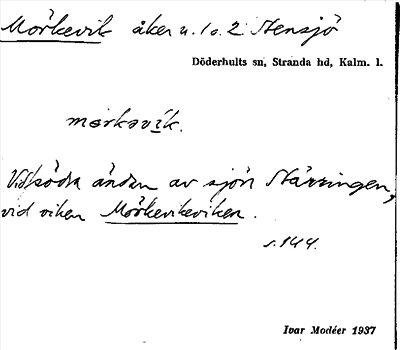 Mörkevik åker u. 1 o. 2 Stensjö
Döderhults sn, Stranda hd, Kalm. l.
mørkəvik.
Vid södra ändan av sjön Närringen,
vid viken Mörkevikeviken.
s. 144.
Ivar Modéer 1937